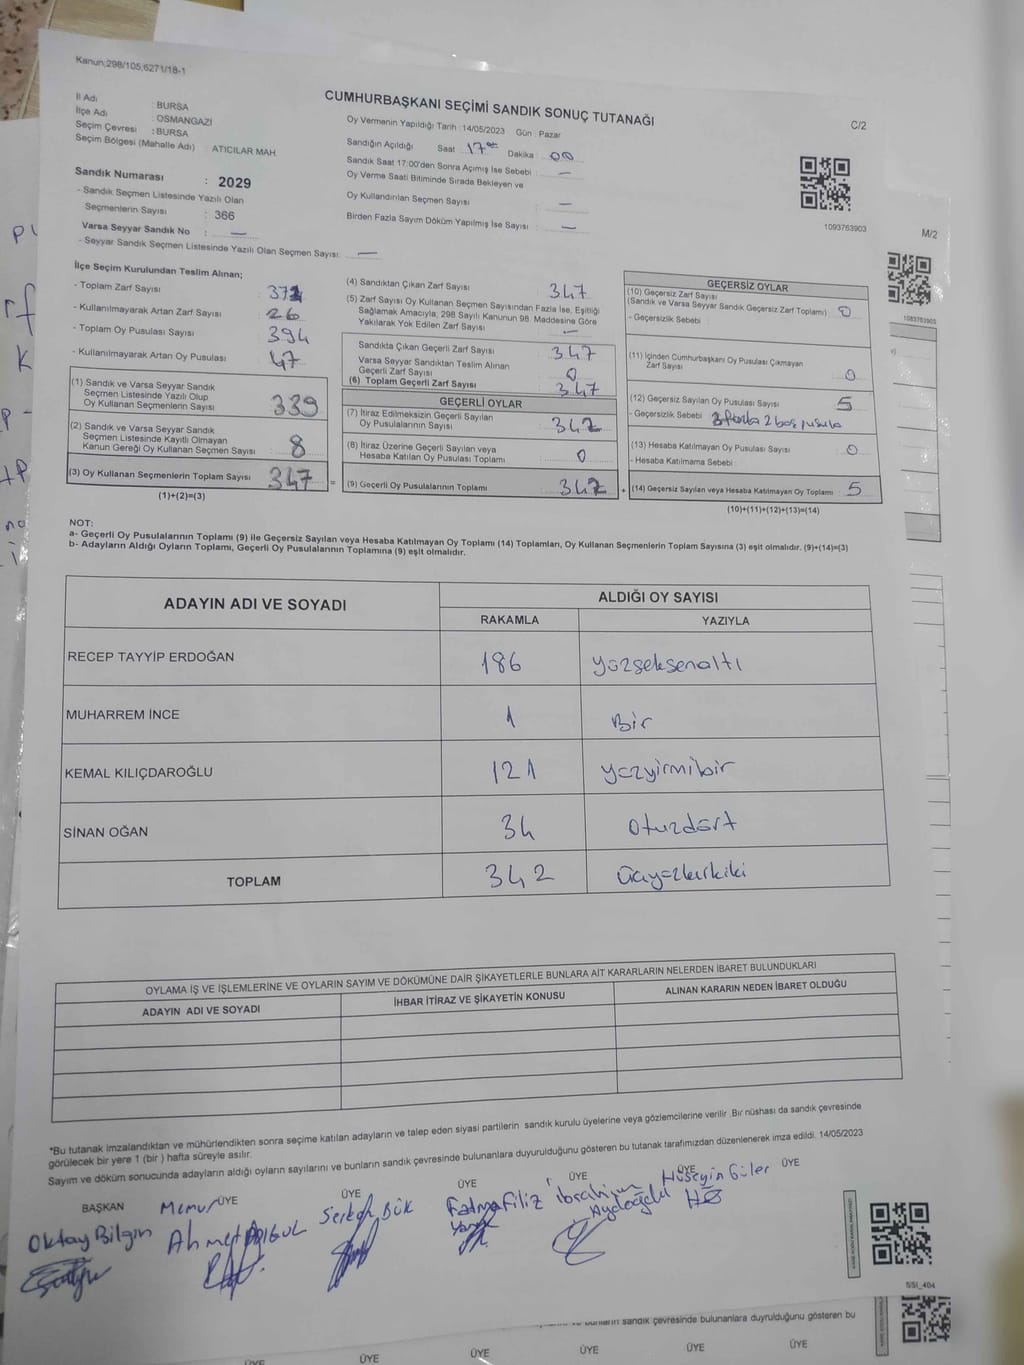 Kanun;298/105,6271/18-1
CUMHURBAŞKANI SEÇİMİ SANDIK SONUÇ TUTANAĞI
C/2
İl Adı : BURSA
İlçe Adı : OSMANGAZİ
Seçim Çevresi : BURSA
Seçim Bölgesi (Mahalle Adı) : ATICILAR MAH.
Sandık Numarası : 2029
- Sandık Seçmen Listesinde Yazılı Olan
Seçmenlerin Sayısı : 366
Varsa Seyyar Sandık No : —
- Seyyar Sandık Seçmen Listesinde Yazılı Olan Seçmen Sayısı: —
Oy Vermenin Yapıldığı Tarih :14/05/2023 Gün : Pazar
Sandığın Açıldığı Saat 17 00 Dakika : 00
Sandık Saat 17:00'den Sonra Açımış İse Sebebi : —
Oy Verme Saati Bitiminde Sırada Bekleyen ve
Oy Kullandırılan Seçmen Sayısı : —
Birden Fazla Sayım Döküm Yapılmış İse Sayısı : —
1093763903
M/2
1093763903
İlçe Seçim Kurulundan Teslim Alınan;
- Toplam Zarf Sayısı : 372
- Kullanılmayarak Artan Zarf Sayısı : 26
- Toplam Oy Pusulası Sayısı : 394
- Kullanılmayarak Artan Oy Pusulası : 47
(1) Sandık ve Varsa Seyyar Sandık
Seçmen Listesinde Yazılı Olup
Oy Kullanan Seçmenlerin Sayısı : 339
(2) Sandık ve Varsa Seyyar Sandık
Seçmen Listesinde Kayıtlı Olmayan
Kanun Gereği Oy Kullanan Seçmen Sayısı : 8
(3) Oy Kullanan Seçmenlerin Toplam Sayısı : 347
(1)+(2)=(3)
(4) Sandıktan Çıkan Zarf Sayısı : 347
(5) Zarf Sayısı Oy Kullanan Seçmen Sayısından Fazla İse, Eşitliği
Sağlamak Amacıyla, 298 Sayılı Kanunun 98. Maddesine Göre
Yakılarak Yok Edilen Zarf Sayısı : —
Sandıkta Çıkan Geçerli Zarf Sayısı : 347
Varsa Seyyar Sandıktan Teslim Alınan
Geçerli Zarf Sayısı : 0
(6) Toplam Geçerli Zarf Sayısı : 347
GEÇERLİ OYLAR
(7) İtiraz Edilmeksizin Geçerli Sayılan
Oy Pusulalarının Sayısı : 342
(8) İtiraz Üzerine Geçerli Sayılan veya
Hesaba Katılan Oy Pusulası Toplamı : 0
= (9) Geçerli Oy Pusulalarının Toplamı : 342 +
GEÇERSİZ OYLAR
(10) Geçersiz Zarf Sayısı
(Sandık ve Varsa Seyyar Sandık Geçersiz Zarf Toplamı) : 0
- Geçersizlik Sebebi :
(11) İçinden Cumhurbaşkanı Oy Pusulası Çıkmayan
Zarf Sayısı : 0
(12) Geçersiz Sayılan Oy Pusulası Sayısı : 5
- Geçersizlik Sebebi : 2 boş pusula
(13) Hesaba Katılmayan Oy Pusulası Sayısı : 0
- Hesaba Katılmama Sebebi :
(14) Geçersiz Sayılan veya Hesaba Katılmayan Oy Toplamı : 5
(10)+(11)+(12)+(13)=(14)
NOT:
a- Geçerli Oy Pusulalarının Toplamı (9) ile Geçersiz Sayılan veya Hesaba Katılmayan Oy Toplamı (14) Toplamları, Oy Kullanan Seçmenlerin Toplam Sayısına (3) eşit olmalıdır. (9)+(14)=(3)
b- Adayların Aldığı Oyların Toplamı, Geçerli Oy Pusulalarının Toplamına (9) eşit olmalıdır.
ADAYIN ADI VE SOYADI
ALDIĞI OY SAYISI
RAKAMLA YAZIYLA
RECEP TAYYİP ERDOĞAN 186 yüzseksenaltı
MUHARREM İNCE 1 Bir
KEMAL KILIÇDAROĞLU 121 yüzyirmibir
SİNAN OĞAN 34 otuzdört
TOPLAM 342 üçyüzkırkiki
OYLAMA İŞ VE İŞLEMLERİNE VE OYLARIN SAYIM VE DÖKÜMÜNE DAİR ŞİKAYETLERLE BUNLARA AİT KARARLARIN NELERDEN İBARET BULUNDUKLARI
ADAYIN ADI VE SOYADI
İHBAR İTİRAZ VE ŞİKAYETİN KONUSU
ALINAN KARARIN NEDEN İBARET OLDUĞU
*Bu tutanak imzalandıktan ve mühürlendikten sonra seçime katılan adayların ve talep eden siyasi partilerin sandık kurulu üyelerine veya gözlemcilerine verilir .Bir nüshası da sandık çevresinde
görülecek bir yere 1 (bir ) hafta süreyle asılır.
Sayım ve döküm sonucunda adayların aldığı oyların sayılarını ve bunların sandık çevresinde bulunanlara duyurulduğunu gösteren bu tutanak tarafımızdan düzenlenerek imza edildi. 14/05/2023
BAŞKAN ÜYE ÜYE ÜYE ÜYE ÜYE ÜYE
Oktay Bilgin
Memur Ahmet
Serkan Bük
Fatma Filiz
İbrahim Aydoğdu
Hüseyin Güler
HG
SSI_404
bunların sandık çevresinde bulunanlara duyurulduğunu gösteren bu
ÜYE ÜYE ÜYE ÜYE ÜYE ÜYE